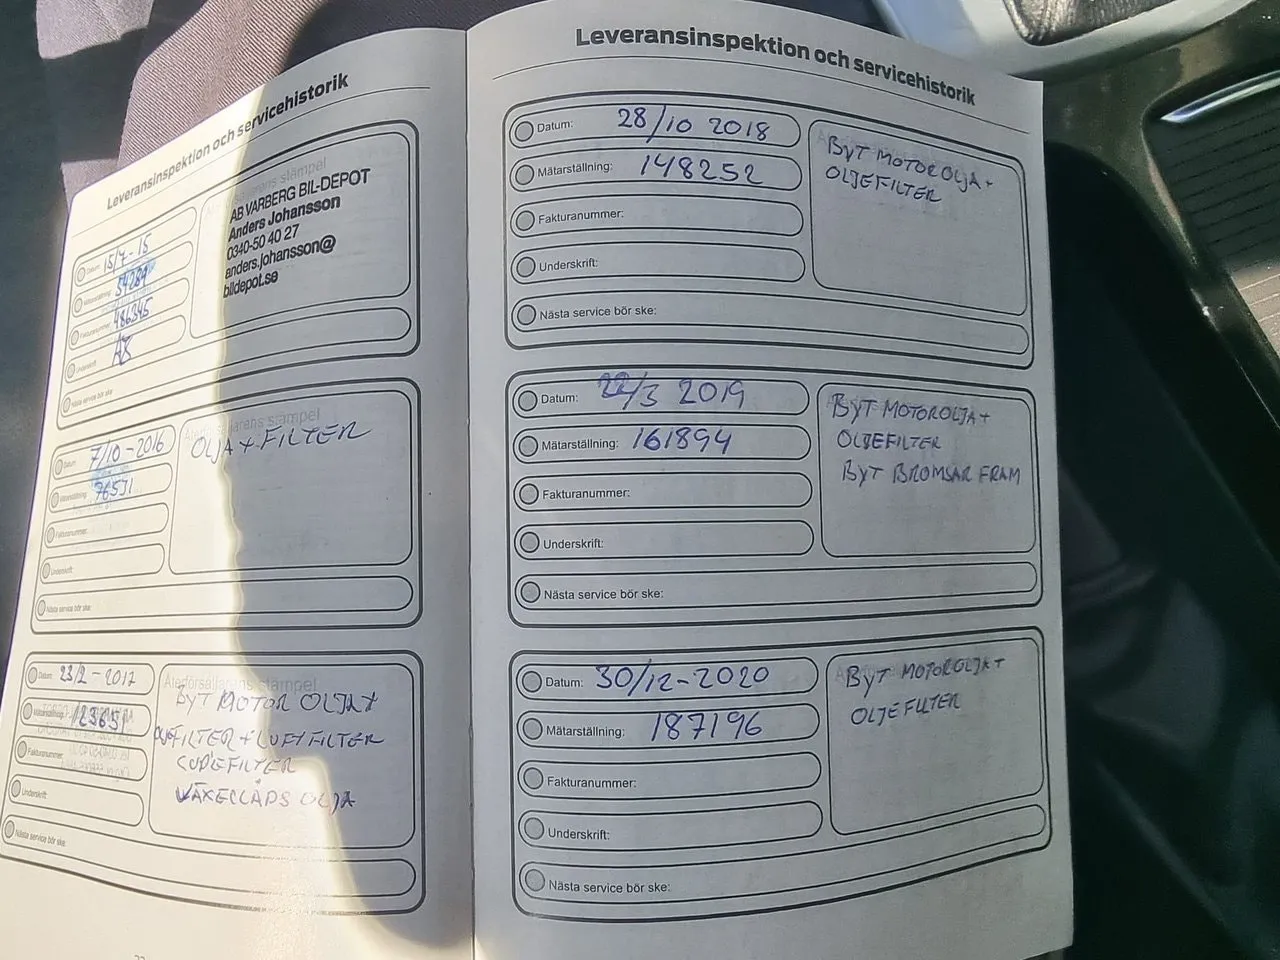 Leveransinspektion och servicehistorik
Datum: 15/7-15
Mätarställning:
Fakturanummer: 486345
Underskrift:
Nästa service bör ske:
Återförsäljarens stämpel
AB VARBERG BIL-DEPOT
Anders Johansson
0340-50 40 27
anders.johansson@
bildepot.se
Datum: 7/10-2016
Mätarställning: 76531
Fakturanummer:
Underskrift:
Nästa service bör ske:
Återförsäljarens stämpel
OLJA + FILTER
Datum: 23/2-2017
Mätarställning:
Fakturanummer:
Underskrift:
Nästa service bör ske:
Återförsäljarens stämpel
BYT MOTOR OLJA+
FILTER + LUFTFILTER
VÄXELLÅDS OLJA
Leveransinspektion och servicehistorik
Datum: 28/10 2018
Mätarställning: 148252
Fakturanummer:
Underskrift:
Nästa service bör ske:
BYT MOTOROLJA+
OLJEFILTER
Datum: 22/3 2019
Mätarställning: 161894
Fakturanummer:
Underskrift:
Nästa service bör ske:
BYT MOTOROLJA+
OLJEFILTER
BYT BROMSAR FRAM
Datum: 30/12-2020
Mätarställning: 187196
Fakturanummer:
Underskrift:
Nästa service bör ske:
BYT MOTOROLJA+
OLJEFILTER